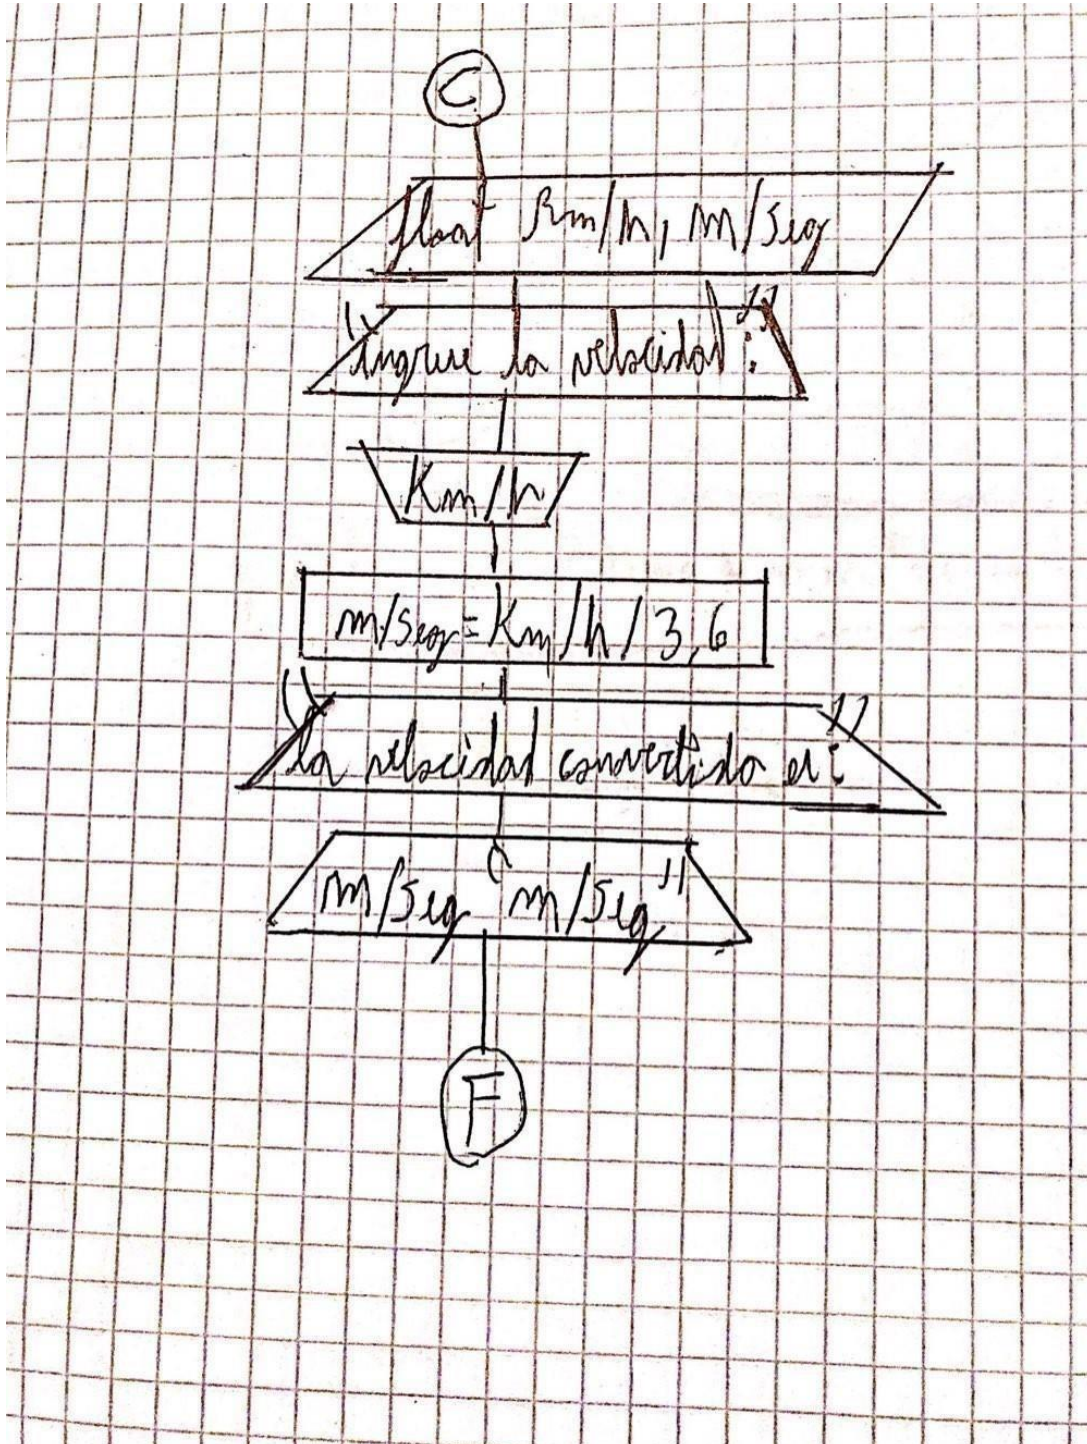 C
float Km/h, m/seg
"ingrese la velocidad:"
Km/h
m/seg=Km/h/3,6
"la velocidad convertida es:"
m/seg "m/seg"
F